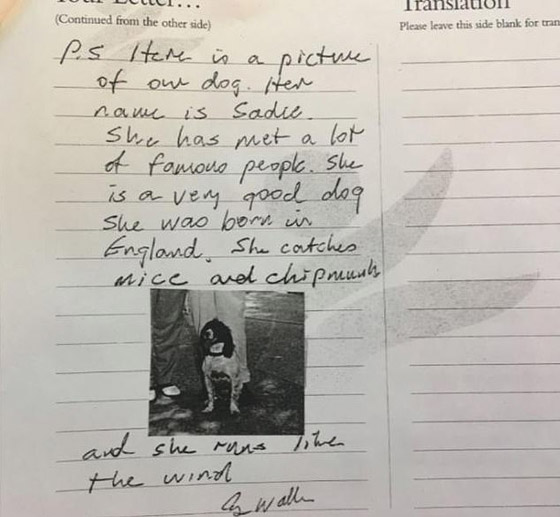 Your Letter...
(Continued from the other side)
P.S Here is a picture
of our dog. Her
name is Sadie.
She has met a lot
of famous people. She
is a very good dog
She was born in
England. She catches
mice and chipmunks
and she runs like
the wind
G. Walker
Translation
Please leave this side blank for tran